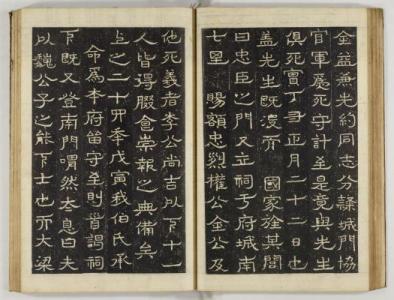 金益兼光約同志分隷城門協
官軍爲死守計至是竟與先生
俱死實丁丑正月二十二日也
盖先生既沒而 國家旌其閭
曰忠臣之門又立祠于府城南
七里 賜額忠烈權公金公及
他死義者李公尚吉以下十一
人皆得腏食崇報之典備矣
上之二十四年戊寅我伯氏承
命爲本府留守至則首謁祠
下既又登南門喟然太息曰夫
以魏公子之能下士也而大梁